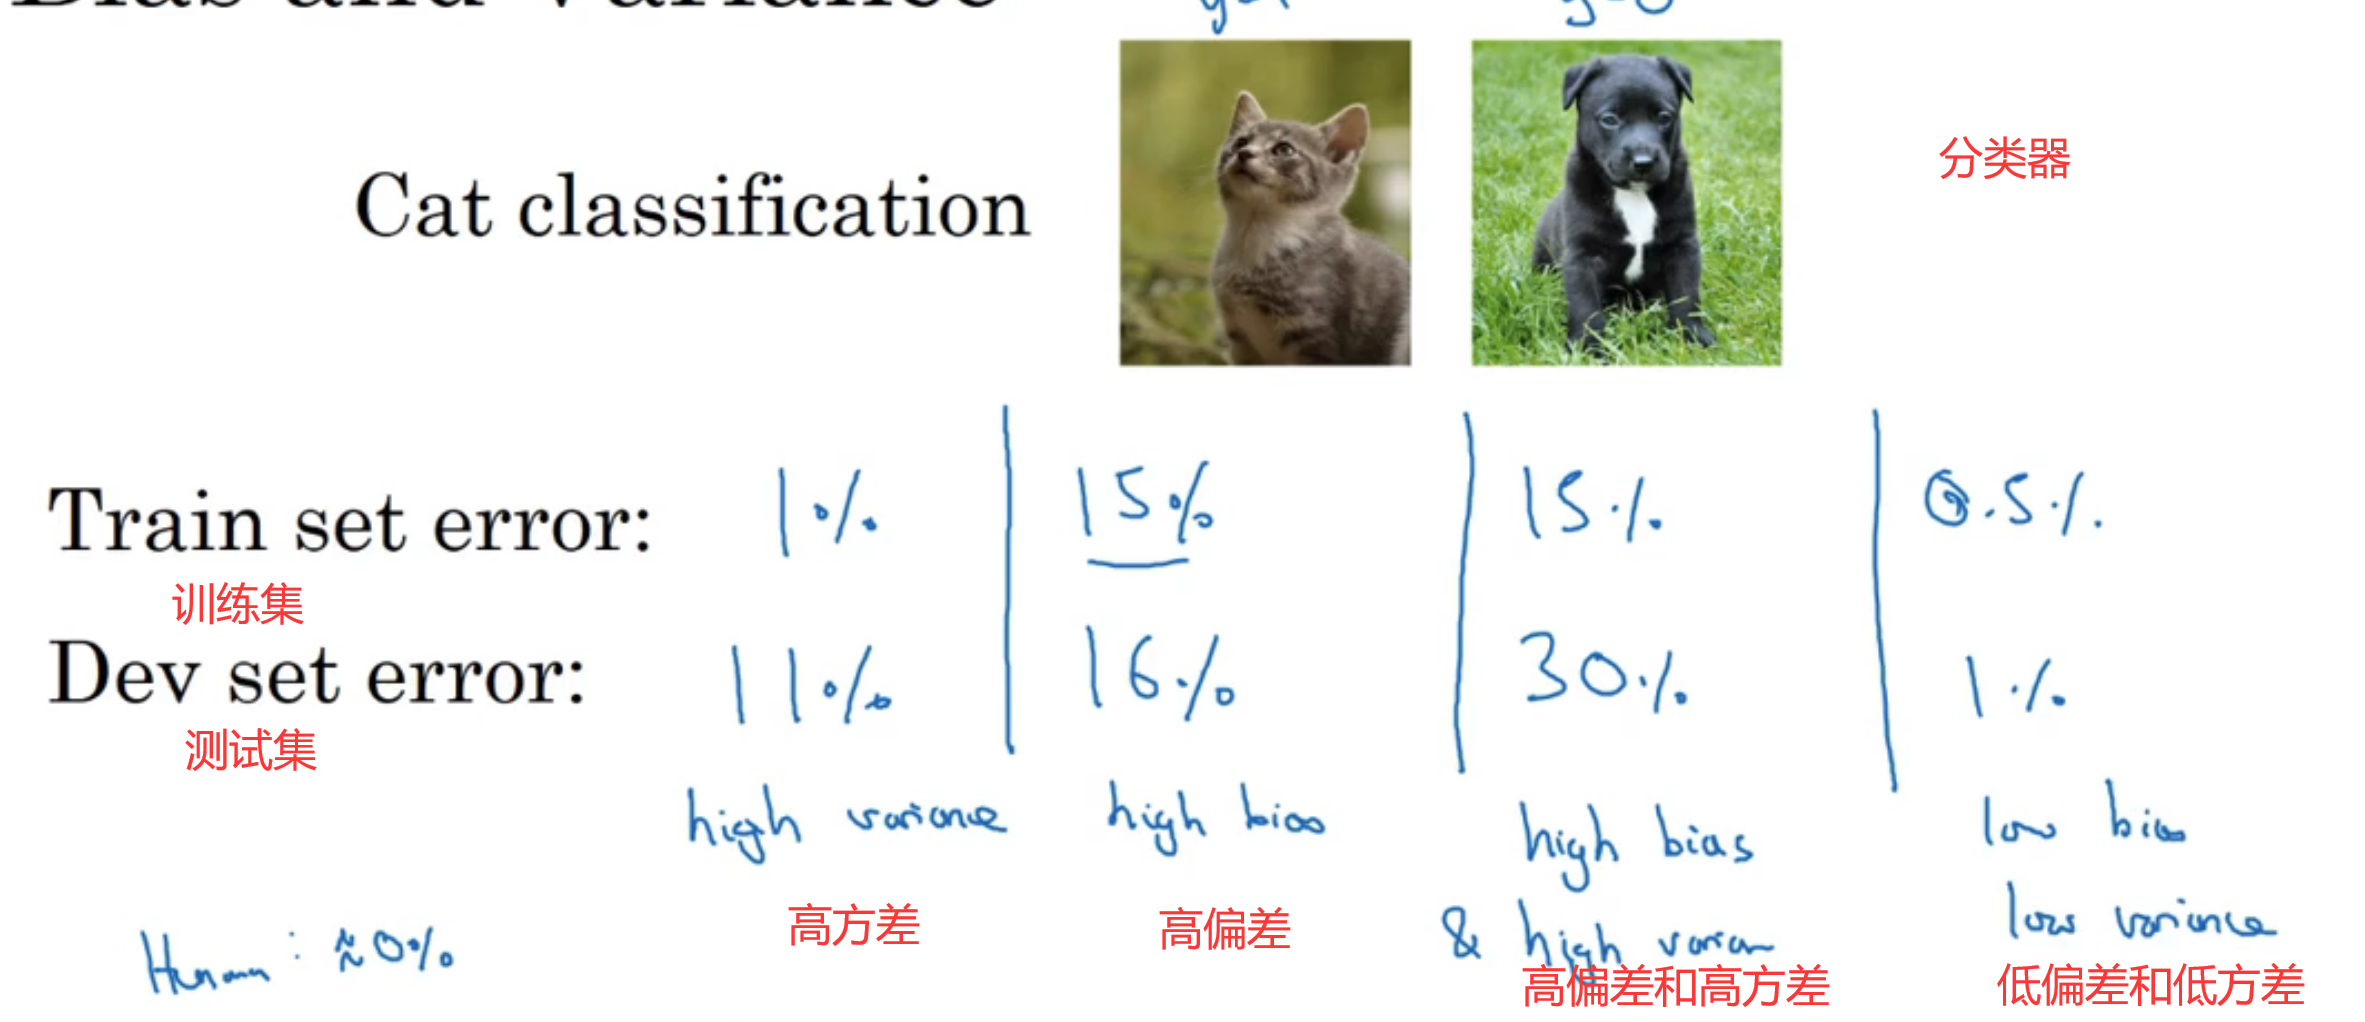 Bias and Variance
Cat classification
分类器
Train set error: 1% 15% 15% 0.5%
训练集
Dev set error: 11% 16% 30% 1%
测试集
high variance high bias high bias low bias
& high varian low variance
高方差 高偏差 高偏差和高方差 低偏差和低方差
Human: ≈0%